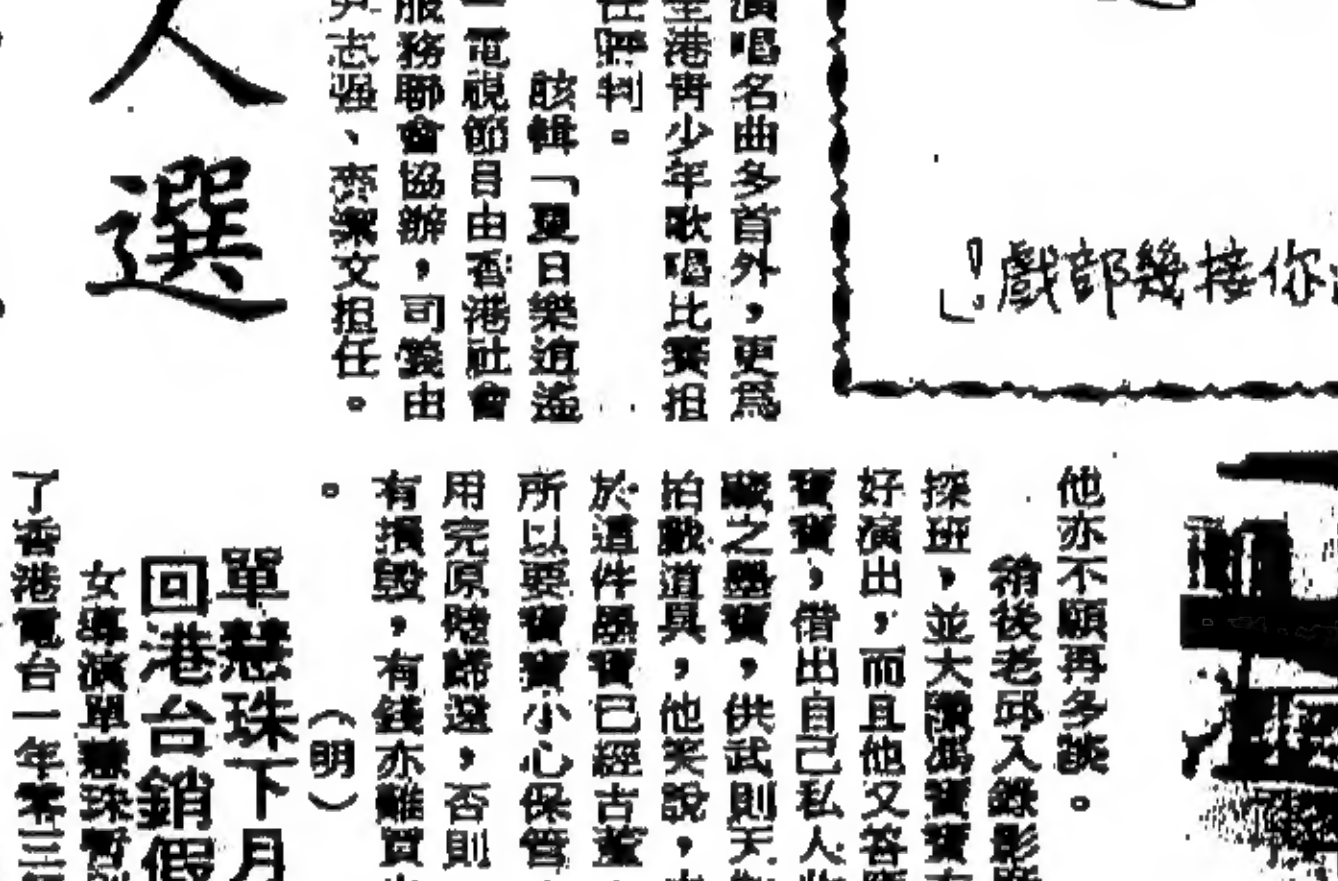 你接幾部戲!」
演唱名曲多首外,更爲
全港靑少年歌唱比賽担
任評判。
該輯「夏日樂逍遙
」電視節目由香港社會
服務聯會協辦,司儀由
尹志强、
文担任。
人選
他亦不願再多談。
稍後老邱入錄影
探班,並大讚馮寶寶
好演出,而且他又答應
寶寶,借出自己私人
藏之墨寶,供武則天
拍戲道具,他笑說,
於這件墨寶已經古董
所以要寶寶小心保管
用完原璧歸還,否則
有損毀,有錢亦難買
。(明)
單慧珠下月
回港台銷假
女導演單慧珠暫別
了香港電台一年零三